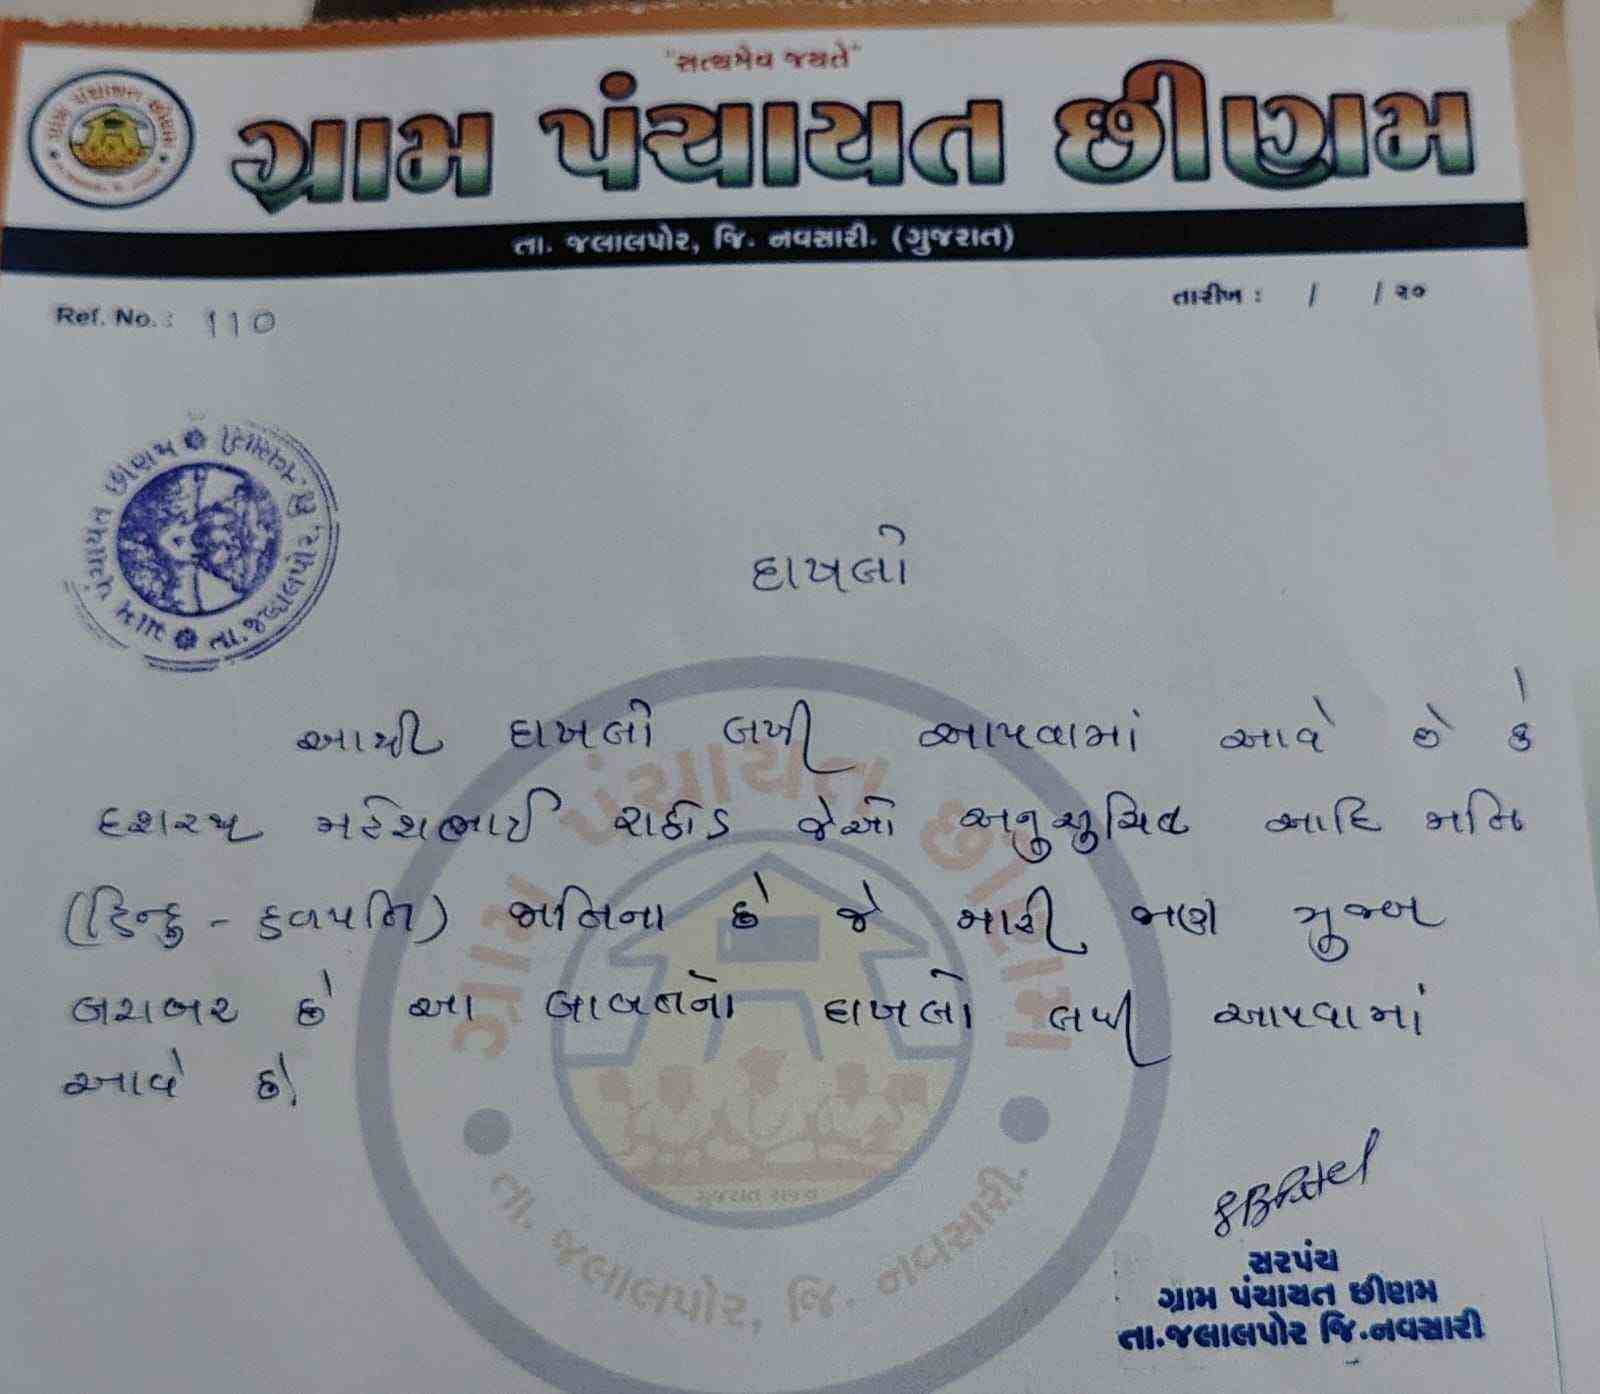 "સત્યમેવ જયતે"
ગ્રામ પંચાયત છીણમ
તા. જલાલપોર, જિ. નવસારી. (ગુજરાત)
Ref. No.: 110
તારીખ : / / ૨૦
ગ્રામ પંચાયત છીણમ
તા.જલાલપોર, જિ.નવસારી
દાખલો
આથી દાખલો લખી આપવામાં આવે છે કે
દશરથ મહેશભાઈ રાઠોડ જેઓ અનુસુચિત આદિ જાતિ
(હિન્દુ - હળપતિ) જાતિના છે જે મારી જાણ મુજબ
બરાબર છે આ બાબતનો દાખલો લખી આપવામાં
આવે છે.
ગ્રામ પંચાયત છીણમ
ગુજરાત રાજ્ય
તા. જલાલપોર, જિ. નવસારી.
SBPatel
સરપંચ
ગ્રામ પંચાયત છીણમ
તા.જલાલપોર જિ.નવસારી